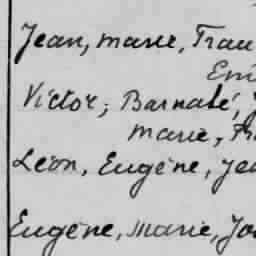 Jean, marie, Frau
Emi
Victor, Barnabé, J
marie, Fr
Léon, Eugène, Jea
Eugène, marie, Jos